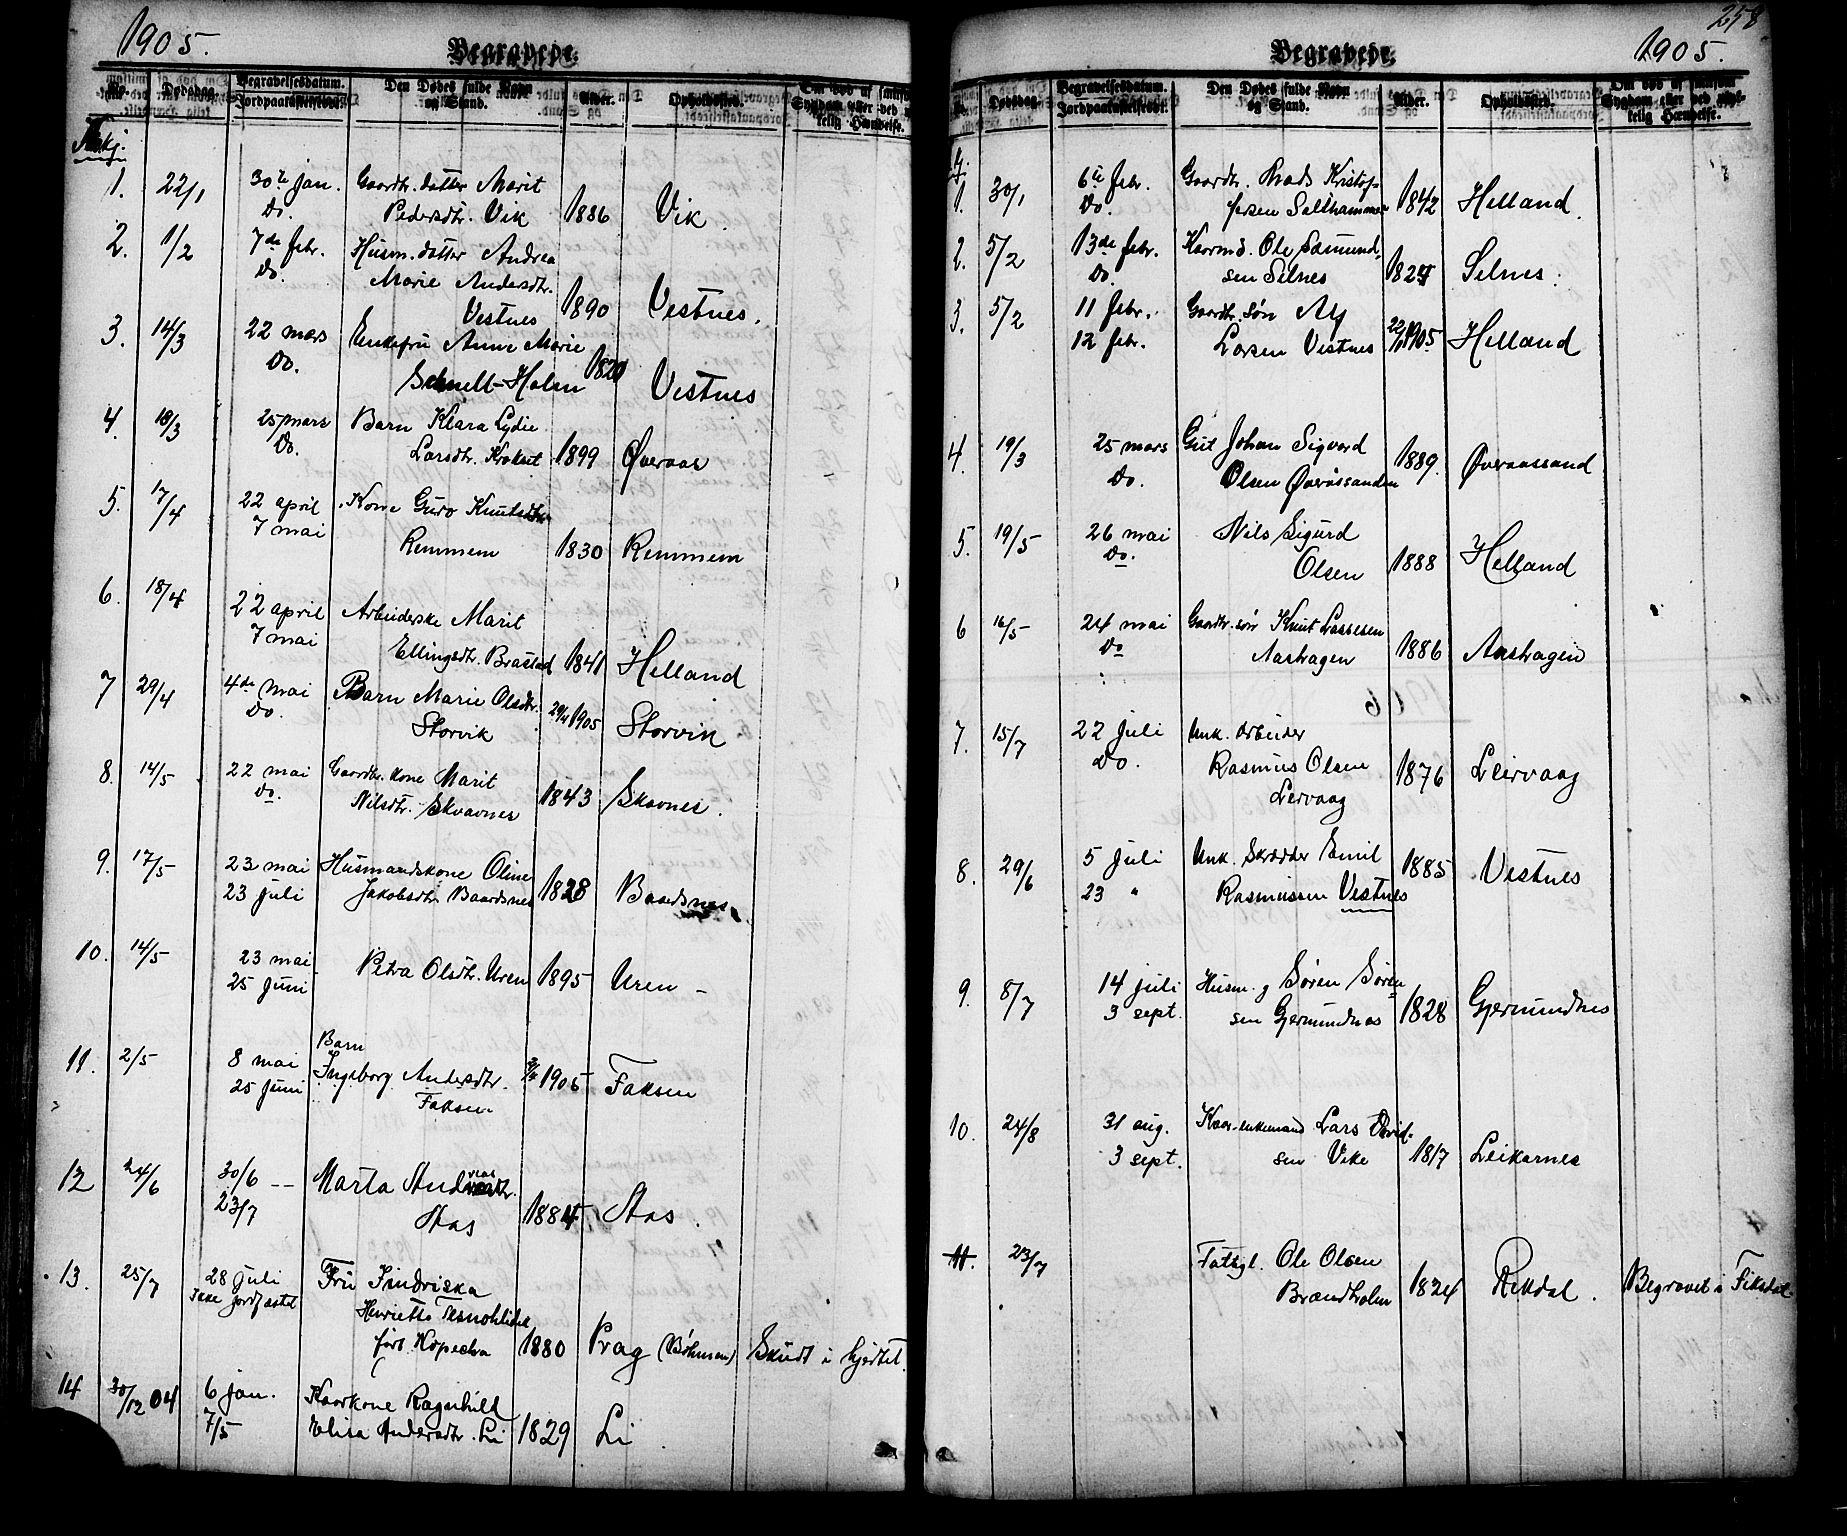 1905.
Begravede.
No.
Dødsdag.
Begravelsesdatum.
Jordpaakastelsesdt.
Den Dødes fulde Navn
og Stand.
Alder.
Opholdssted.
Om død af
Sygdom eller ved
kelig Hændelse.
1. 22/1 30te jan. Gaardbr. datter Marit
Do. Pedersdtr. Vik 1886 Vik
2. 1/2 7de febr. Husm. datter Andrea
Do. Marie Andersdtr.
Vestnes 1890 Vestnes.
3. 14/3 22 mars Enkefru Anne Marie
Do. Schnell-Holm Vestnes
4. 18/3 25 mars Barn Klara Lydie
Do. Larsdtr. 1899 Øveraas
5. 17/4 22 april Kone Guro Knutsdtr
7 mai Remmem 1830 Remmem
6. 18/4 22 april Arbeiderske Marit
7 mai Ellingsdtr. Brastad 1841 Helland
7 29/4 4de mai Barn Marie Olsdtr.
Do. Storvik 1905 Storvik
8. 14/5 22 mai Gaardbr. kone Marit
Do. Nilsdtr. Skvavnes 1843 Skavnes.
9. 17/5 23 mai Husmandskone Oline
23 juli Jakobsdtr. Baardsnes 1828 Baardsnes
10. 14/5 23 mai Petra Olsdtr. Uren 1895 Uren -
25 juni
11. 2/5 8 mai Barn
25 juni Ingeborg Andersdtr. 1905 Faksen
Faksen
12 24/6 30/6 -- Marta
23/7 Aas 1884 Aas.
13. 25/7 28 juli Fru Jindriska
Ikke jordfæstet Henriette Tesnohlidek
født Kopecka 1880 Prag (Bøhmen) Skudt i hjertet.
14 30/12 04 6 jan. Kaarkone Ragnhild
7/5 Elisa Andersdtr. Li 1829 Li.
258.
Begravede.
1905.
No.
Dødsdag.
Begravelsesdatum.
Jordpaakastelsesdt.
Den Dødes fulde Navn
og Stand.
Alder.
Opholdssted.
Om død af smitsom
Sygdom eller ved ulyk-
kelig Hændelse.
1. 30/1 6te febr. Gaardbr. Mads Kristof-
Do. fersen Salthammer 1842 Helland.
2. 5/2 13de febr. Kaarmd. Ole Sæmund-
Do. sen Selnes 1824 Selnes.
3. 5/2 11 febr. Gaardbr. søn Alf
12 febr. Larsen Vestnes 1905 Helland
4. 19/3 25 mars Gut Johan Sigvard
Do. Olsen Øveraassanden 1889. Øveraassand
5. 19/5 26 mai Nils Sigurd
Do. Olsen 1888 Helland
6 16/5 24 mai Gaardbr. søn Knut Lassesen
Do Aashagen 1886 Aashagen
7. 15/7 22 juli Unk. Arbeider
Do. Rasmus Olsen 1876 Leirvaag
Leirvaag
8. 29/6 5 juli Unk. Skrædder Emil 1885 Vestnes
23 " Rasmussen Vestnes
9. 8/7 14 juli Husm. g Søren Søren
3 sept. sen Gjermundnes 1828 Gjermundnes
10. 24/8 31 aug. Kaar-enkemand Lars
3 sept. sen Vike 1817 Leikarnes
11. 23/7 Fattigl. Ole Olsen
Brandholm 1824 Rekdal. Begravet i Fiksdal.